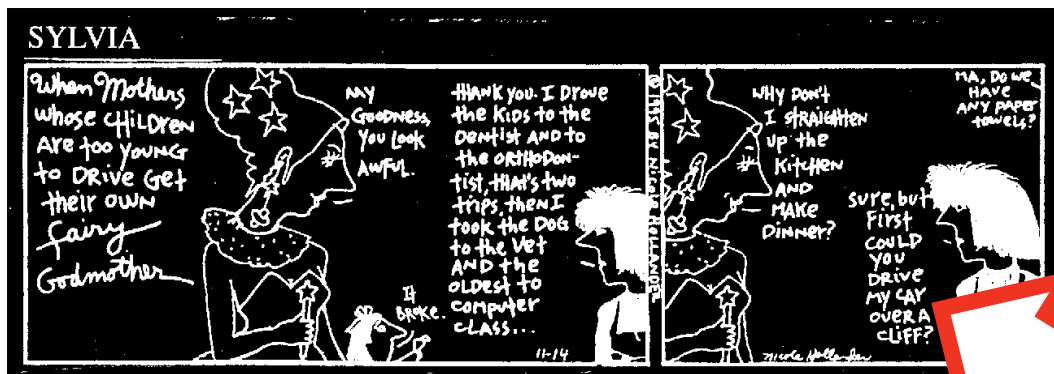 SYLVIA
When Mothers
whose CHILDREN
ARE too YOUNG
to DRIVE Get
their OWN
fairy
Godmother
MY
GOODNESS,
YOU LOOK
AWFUL.
It
BROKE.
tHANK YOU. I DROVE
the KIDS to the
DENtist AND to
the ORtHODON-
tist, tHAt's two
trips, then I
took the DOG
to the Vet
AND the
OLDEST to
COMPUTER
CLASS...
11-14
© 1995 BY NICOLE HOLLANDER
WHY DON't
I StRAIGHTEN
UP the
KitCHEN
AND
MAKE
DINNER?
MA, DO WE
HAVE
ANY PAPER
towels?
SURE, but
FIRST
COULD
YOU
DRIVE
MY CAR
OVER A
CLIFF?
Nicole Hollander